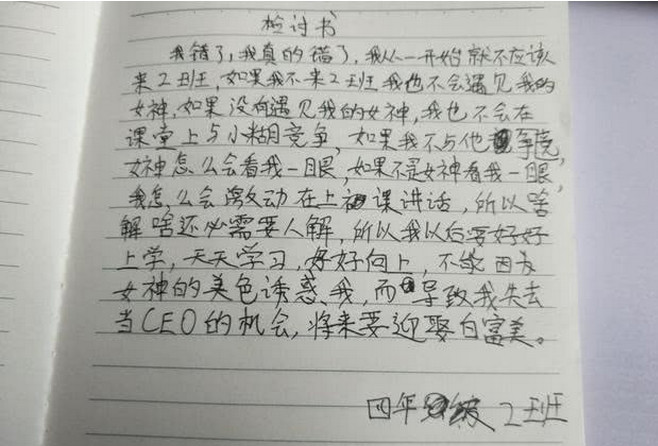 检讨书
我错了,我真的错了,我从一开始就不应该
来2班,如果我不来2班我也不会遇见我的
女神,如果没有遇见我的女神,我也不会在
课堂上与小糊竞争,如果我不与他争竞,
女神怎么会看我一眼,如果不是女神看我一眼,
我怎么会激动在上课讲话,所以啥
解啥还必需要人解,所以我以后要好好
上学,天天学习,好好向上,不能因为
女神的美色诱惑我,而导致我失去
当CEO的机会,将来要迎娶白富美。
四年级 2班